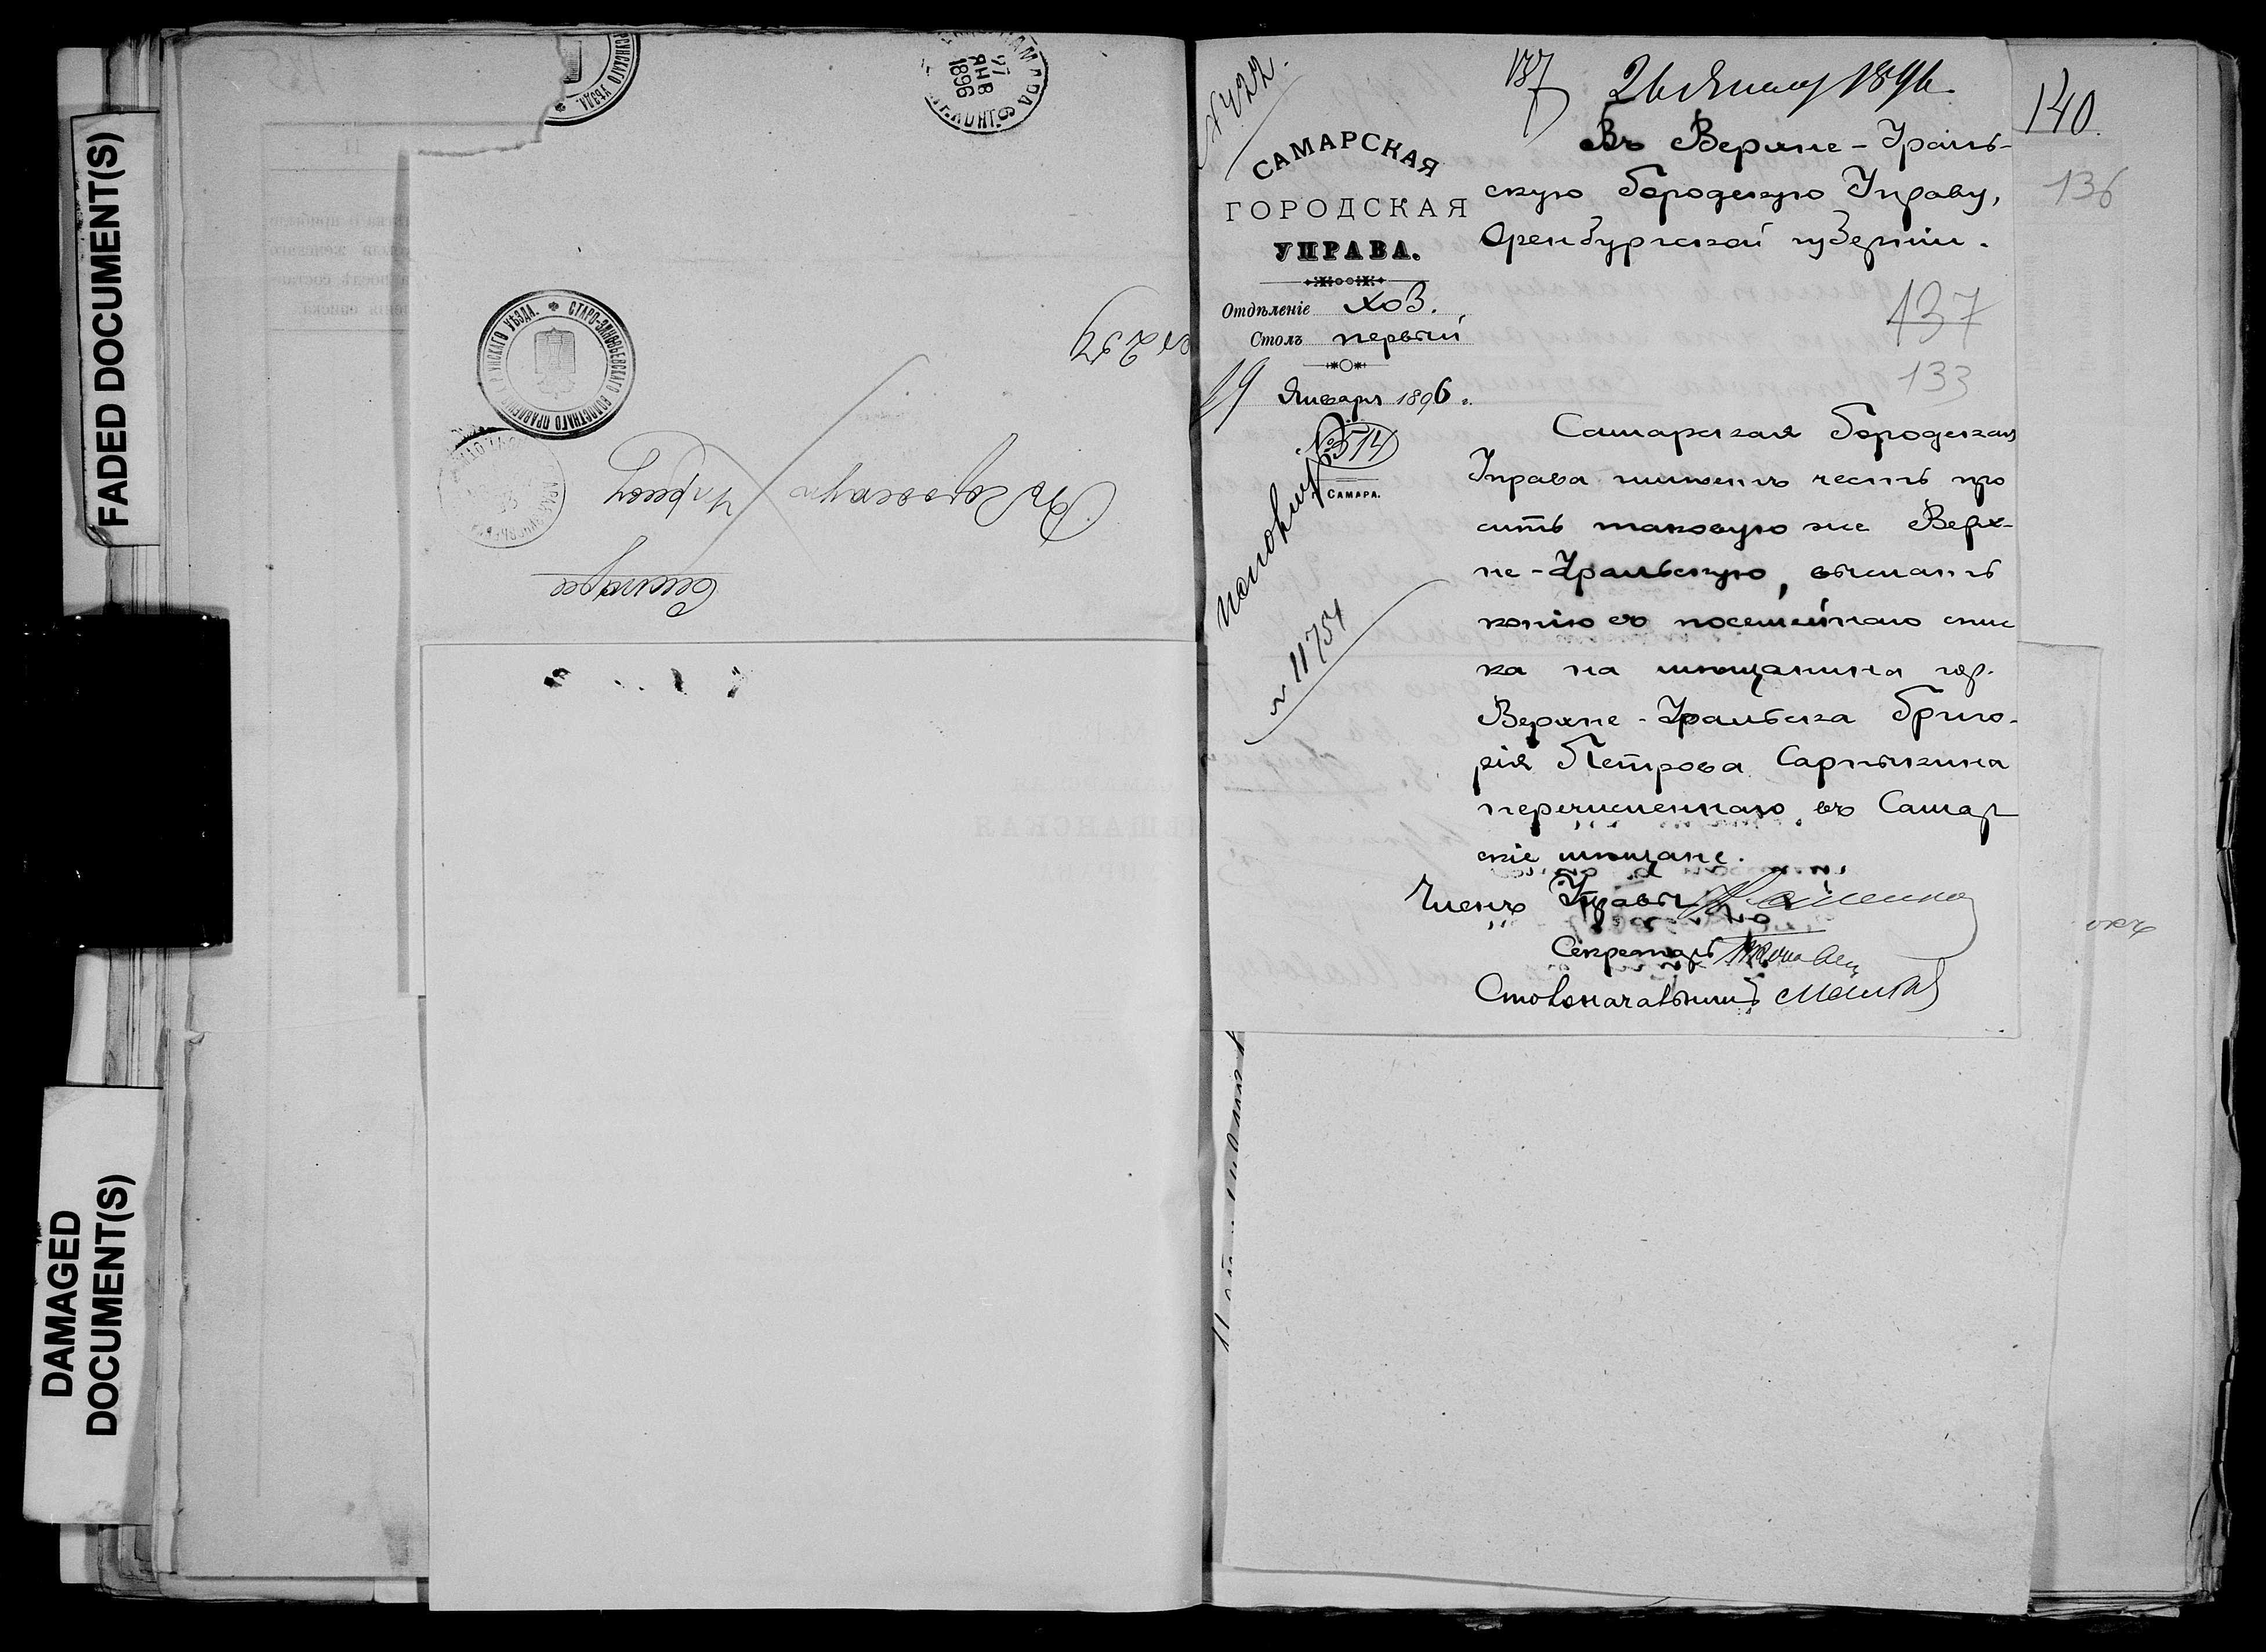 FADED DOCUMENT(S)
DAMAGED
DOCUMENT(S)
27
ЯНВ
1896
СТАРО-ЗИНОВЬЕВСКАГО ВОЛОСТНАГО ПРАВЛЕНІЯ
УѢЗДА.
№ 259
Въ Городскую Управу
Самара
№ 422.
137
26 Января 1896
140
136
САМАРСКАЯ
ГОРОДСКАЯ
УПРАВА.
Отдѣленіе Хоз.
Столъ первый
19 Января 1896 г.
№ 514
г. САМАРА.
№ 11754
Въ Верхне-Ураль-
скую Городскую Управу,
Оренбургской губерніи.
137
133
Самарская Городская
Управа имѣетъ честь про
сить таковую же Верх-
не-Уральскую, выслать
копію съ посемейнаго спис
ка на мѣщанина гор.
Верхне-Уральска Григо-
рія Петрова Сарпыкина
перечисленнаго въ Самар
скіе мѣщане.
Членъ Управы
Секретарь
Столоначальникъ